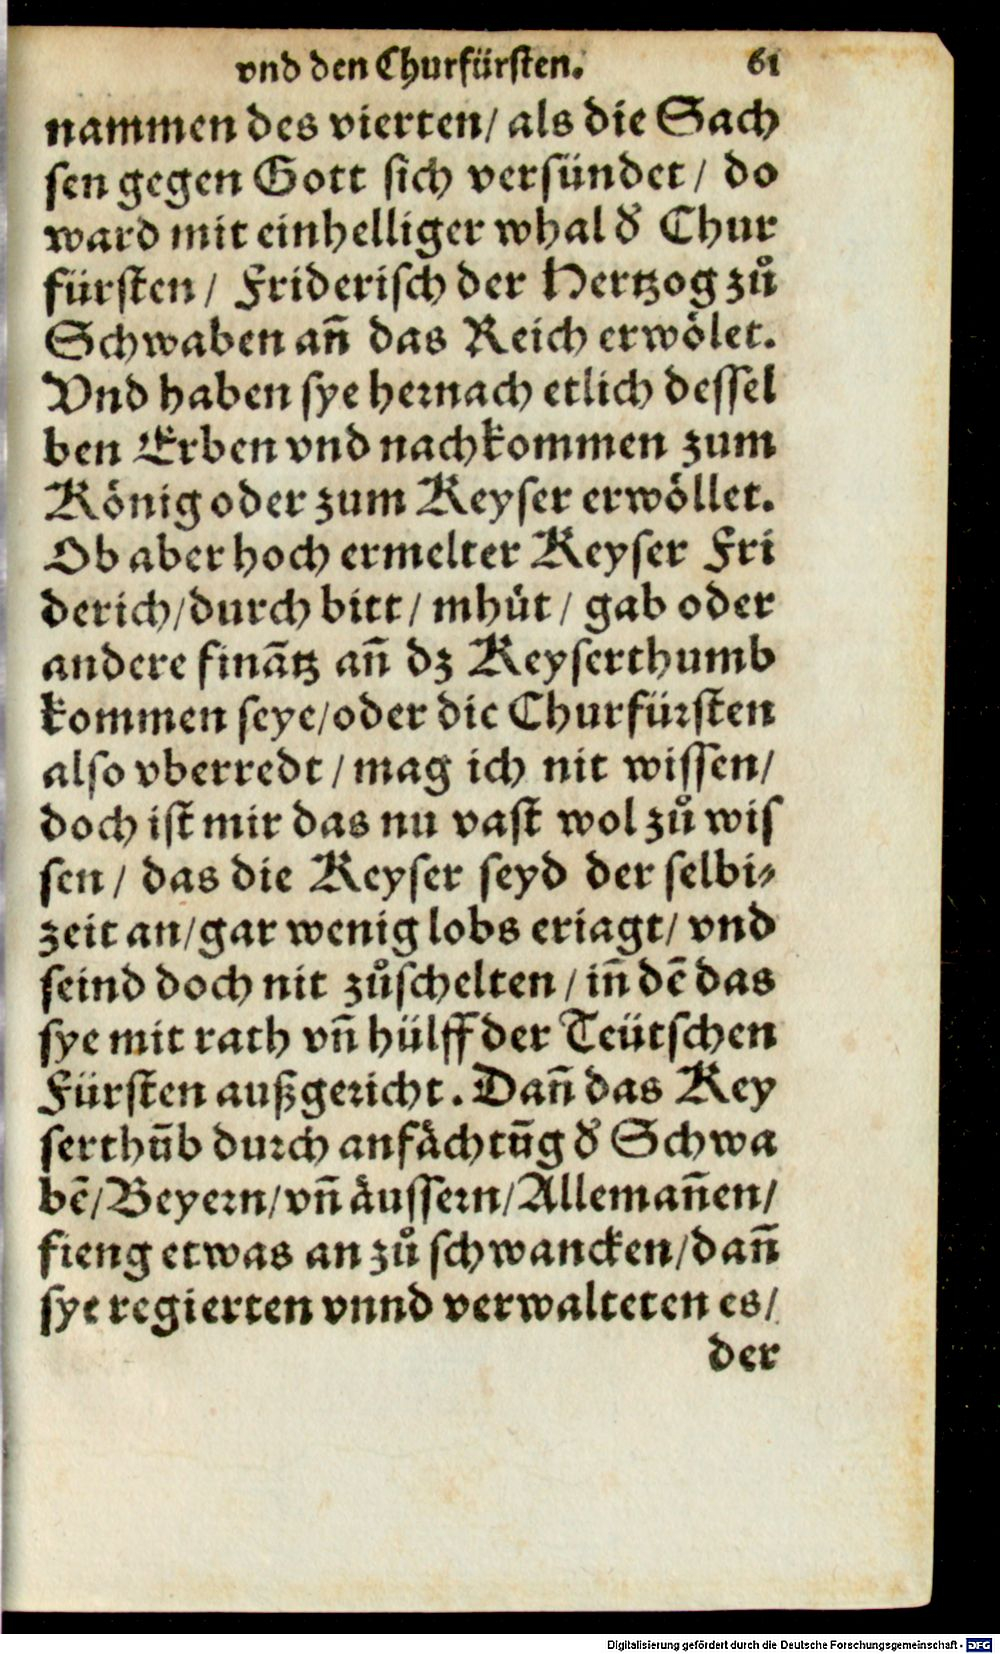 vnd den Churfürsten. 61
nammen des vierten/ als die Sach
sen gegen Gott sich versündet/ do
ward mit einhelliger whal d̓ Chur
fürsten/ Friderisch der Hertzog zů
Schwaben an̄ das Reich erwölet.
Vnd haben sye hernach etlich dessel
ben Erben vnd nachkommen zum
König oder zum Keyser erwöllet.
Ob aber hoch ermelter Keyser Fri
derich/durch bitt/ mhüt/ gab oder
andere finātz an̄ dz Keyserthumb
kommen seye/oder die Churfürsten
also vberredt/mag ich nit wissen/
doch ist mir das nu vast wol zů wis
sen/ das die Keyser seyd der selbi⸗
zeit an/gar wenig lobs eriagt/ vnd
seind doch nit zůschelten/in̄ dē das
sye mit rath vn̄ hülff der Teütschen
Fürsten außgericht. Dan̄ das Key
serthūb durch anfächtūg d̓ Schwa
bē/Beyern/vn̄ äussern/Alleman̄en/
fieng etwas an zů schwancken/dan̄
sye regierten vnnd verwalteten es/
der
Digitalisierung gefördert durch die Deutsche Forschungsgemeinschaft - DFG